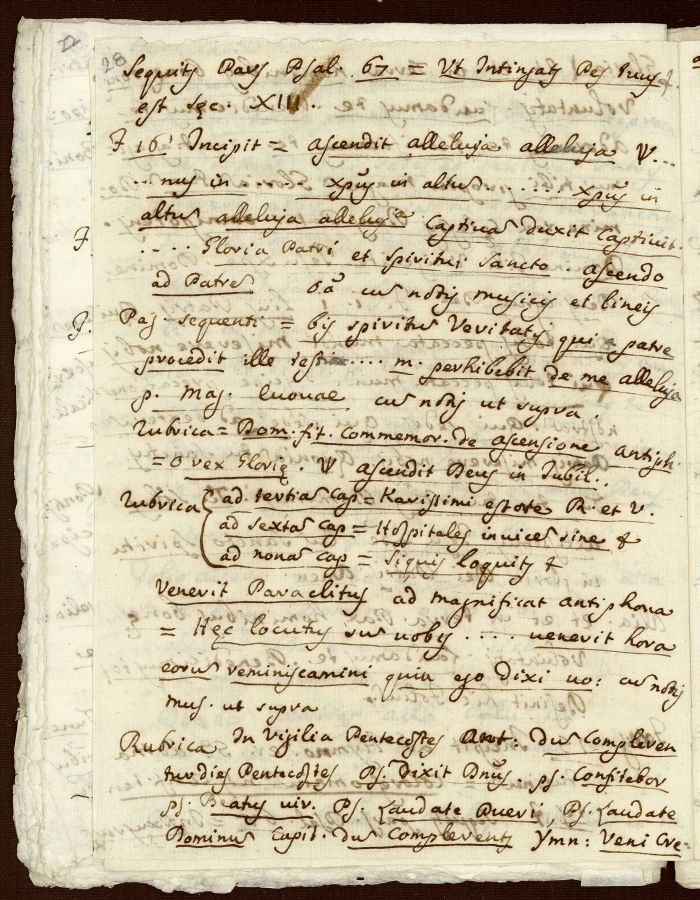 28
Sequitʒ Pars Psal. 67 = Ut Intingatʒ Pes tuus
est sęc. XIII.
F 16' Incipit = ascendit alleluja alleluja ℣...
... nus in ..... xpūs in altus ..... xpūs in
altus alleluja alleluja Captivas duxit Captivit.
F .... Gloria Patri et spiritui Sancto .. ascendo
ad Patrē oā cus notis musicis et lineis
F. Pag. sequenti = bis spiritus Veritatis qui a patre
procedit ille testi .... m. perhibebit De me alleluja
p. Mag. Euouae cus notis ut supra.
Rubrica = Dom. fit. Commemor. de ascensione antiph.
= O rex Glorię. ℣ ascendit Deus in Jubil..
Rubrica ad tertias Cap = Karissimi estote R. et V.
ad Sextas Cap = Hospitales invices sine &
ad nonas Cap = Siquis loquitʒ &
Venerit Paraclitus ad magnificat antiphona
= Hęc locutus sus vobis .... venerit hora
eorus reminiscamini quia ego Dixi vo: cus notis
mus. ut supra
Rubrica In Vigilia Pentecostes Ant. Dus Compleren
tur dies Pentecostes Ps. Dixit Dnūs. ps. Confitebor
ps. Beatus vir. Ps. Laudate Pueri, Ps. Laudate
Dominus Capit. Dus Complerentʒ ymn: Veni Cre=